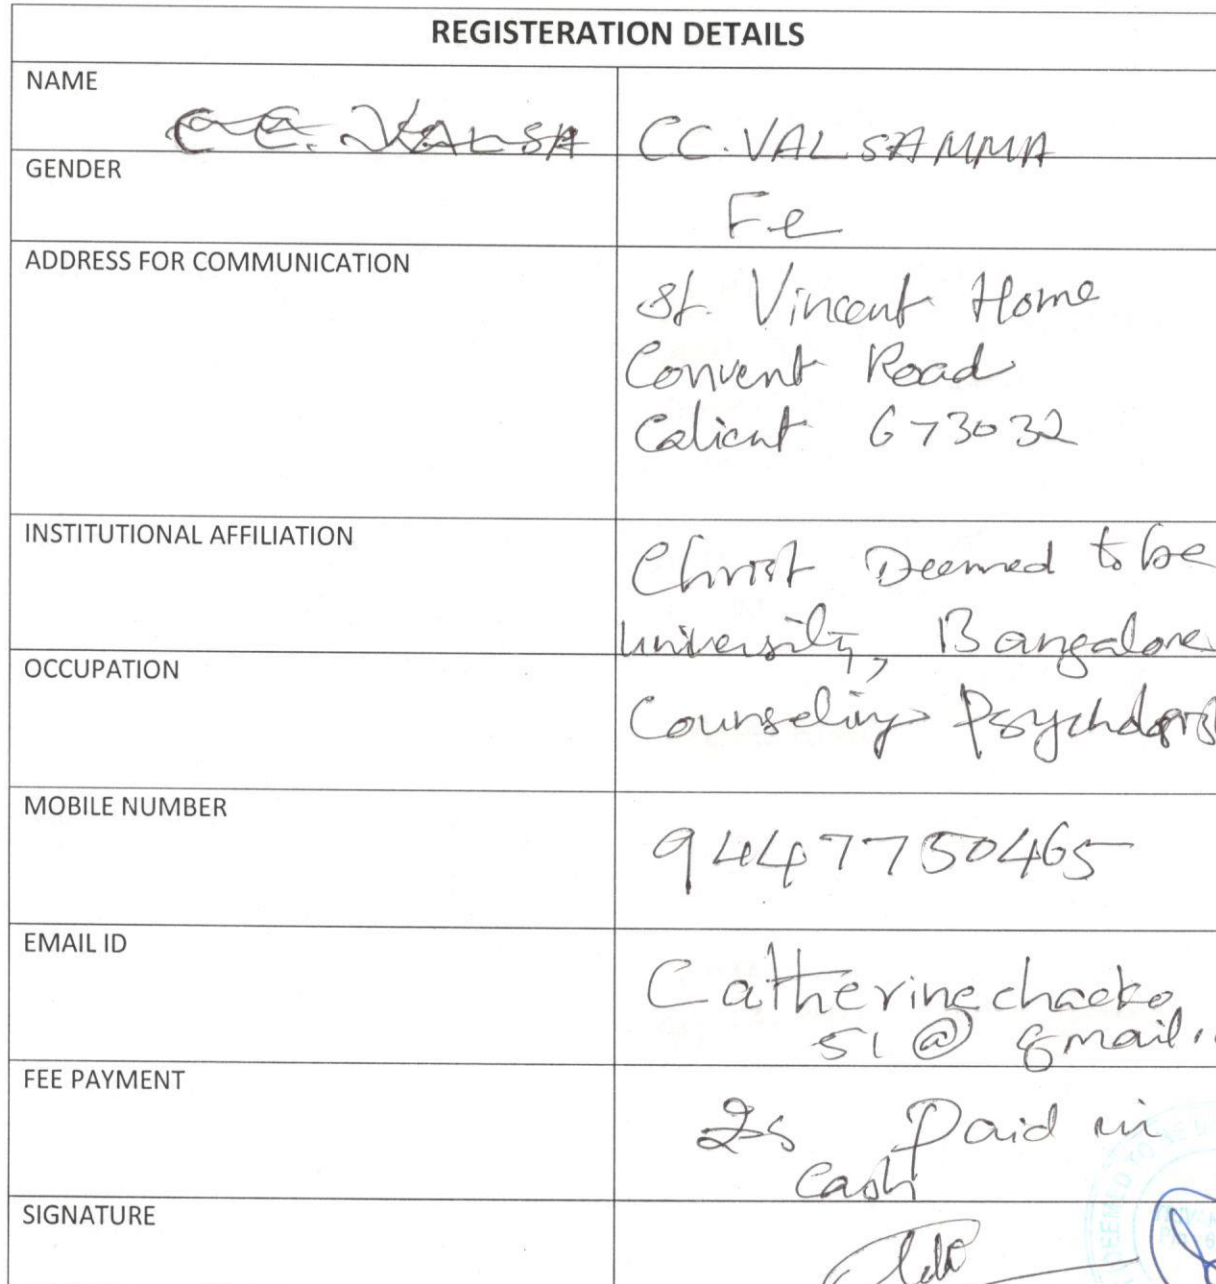 REGISTERATION DETAILS
NAME
C C. VALSA CC. VALSAMMA
GENDER
Fe
ADDRESS FOR COMMUNICATION
St. Vincent Home
Convent Road
Calicut 673032
INSTITUTIONAL AFFILIATION
Christ Deemed to be
university, Bangalore
OCCUPATION
Counseling Psychologist
MOBILE NUMBER
9447750465
EMAIL ID
Catherinechacko
51@gmail.
FEE PAYMENT
Is Paid in
cash
SIGNATURE
DEEMED TO BE U